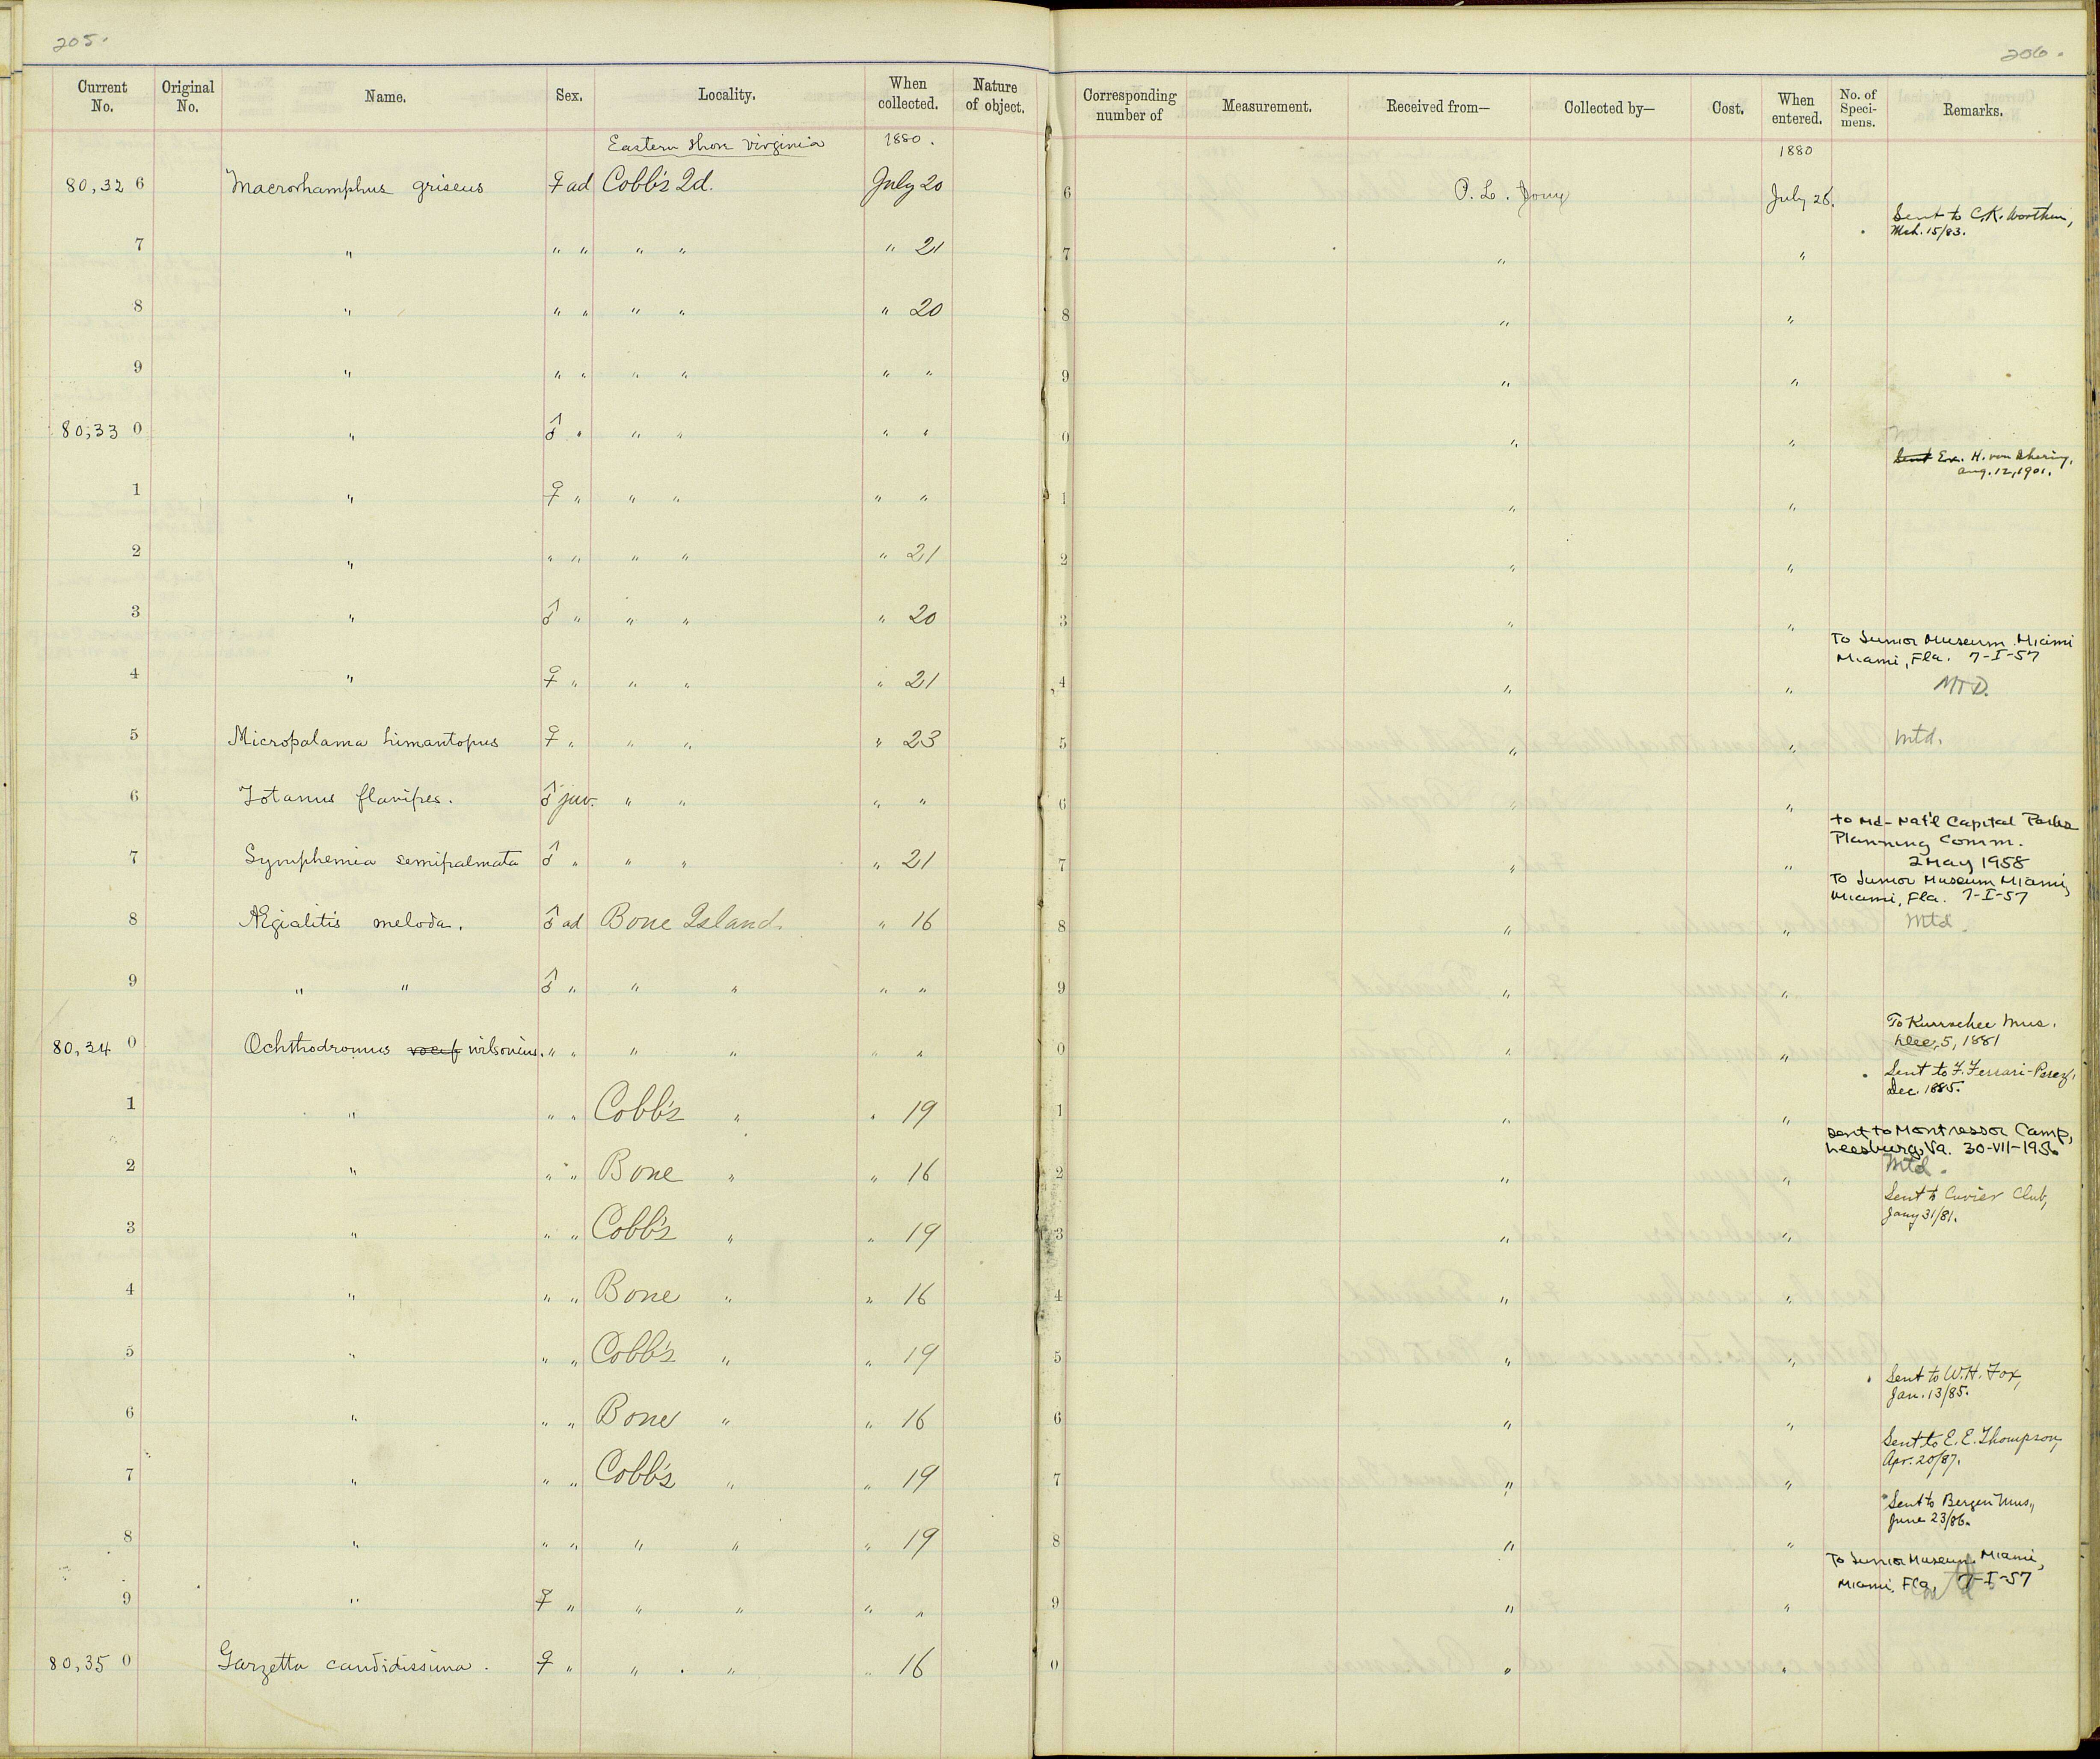 205.
206.
Current No. Original No. Name. Sex. Locality. When collected. Nature of object. Corresponding number of Measurement. Received from— Collected by— Cost. When entered. No. of Speci-mens. Remarks.
Eastern Shore Virginia 1880. 1880
80,326 Macrorhamphus griseus ♀ ad Cobb's Id. July 20 6 P. L. Jouy July 28. Sent to C.K. Worthen,
Mch. 15/83.
7 " " " " " " 21 7 " "
8 " " " " " " 20 8 " "
9 " " " " " " " 9 " "
80,330 " ♂ " " " " " 0 " " Mtd
Sent Ex. H. von Ihering,
Aug. 12, 1901.
1 " ♀ " " " " " 1 " "
2 " " " " " " 21 2 " "
3 " ♂ " " " " 20 3 " "
To Junior Museum Miami
Miami, Fla. 7-I-57
4 " ♀ " " " " 21 4 " " MTD.
5 Micropalama himantopus ♀ " " " " 23 5 " " Mtd.
6 Totanus flavipes. ♂ juv. " " " " 6 " "
To Md-Nat'l Capital Parks
Planning Comm.
2 May 1958
7 Symphemia semipalmata ♂ " " " " 21 7 " "
To Junior Museum Miami,
Miami, Fla. 7-I-57
8 Ægialitis meloda. ♂ ad Bone Island. " 16 8 " " Mtd.
9 " " ♂ " " " " " 9 " "
To Kurrachee Mus.
Dec. 5, 1881
80,340 Ochthodromus vocif wilsonius. " " " " " " 0 " "
Sent to F. Ferrari-Perez,
Dec. 1885.
1 " " " Cobb's " " 19 1 " "
Sent to Montressor Camp,
Leesburg, Va. 30-VII-1956
2 " " " Bone " " 16 2 " " Mtd.
Sent to Cuvier Club,
Jany 31/81.
3 " " " Cobb's " " 19 3 " "
4 " " " Bone " " 16 4 " "
5 " " " Cobb's " " 19 5 " "
Sent to W.H. Fox,
Jan. 13/85.
6 " " " Bone " " 16 6 " "
Sent to E. E. Thompson,
Apr. 20/87.
7 " " " Cobb's " " 19 7 " "
Sent to Bergen Mus.,
June 23/86.
8 " " " " " " 19 8 " "
To Junior Museum Miami,
Miami, Fla, 7-I-57
9 " ♀ " " " " " 9 " "
80,350 Garzetta candidissima. ♀ " " " " 16 0 " "